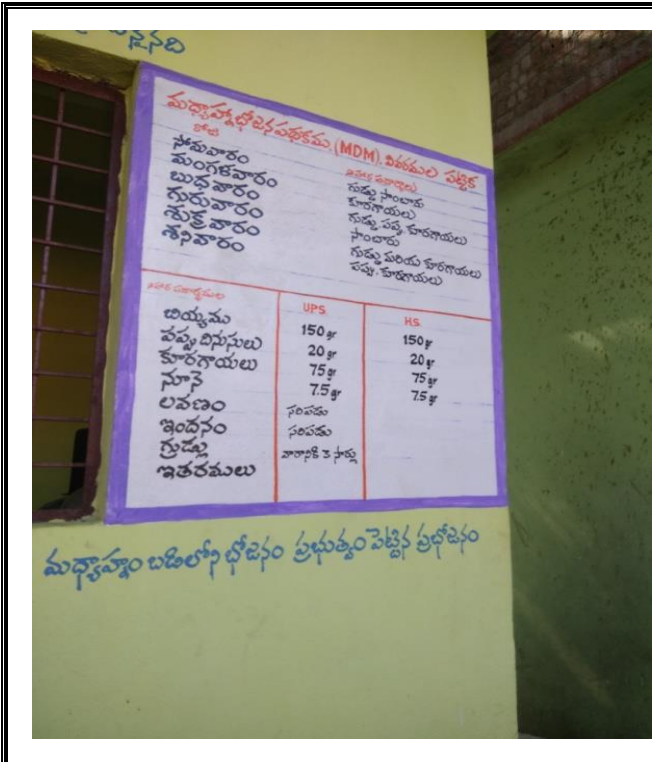 మధ్యాహ్నభోజన పథకము (MDM). వివరముల పట్టిక
రోజు
సోమవారం గుడ్డు సాంబారు
మంగళవారం కూరగాయలు
బుధవారం గుడ్డు పప్పు కూరగాయలు
గురువారం సాంబారు
శుక్రవారం గుడ్డు మరియు కూరగాయలు
శనివారం పప్పు కూరగాయలు
UPS HS
బియ్యము 150 gr 150 gr
పప్పు దినుసులు 20 gr 20 gr
కూరగాయలు 75 gr 75 gr
నూనె 7.5 gr 7.5 gr
లవణం సరిపడు
ఇంధనం సరిపడు
గ్రుడ్లు వారానికి 3 సార్లు
ఇతరములు
మధ్యాహ్నం బడిలోని భోజనం ప్రభుత్వం పెట్టిన ప్రభోజనం